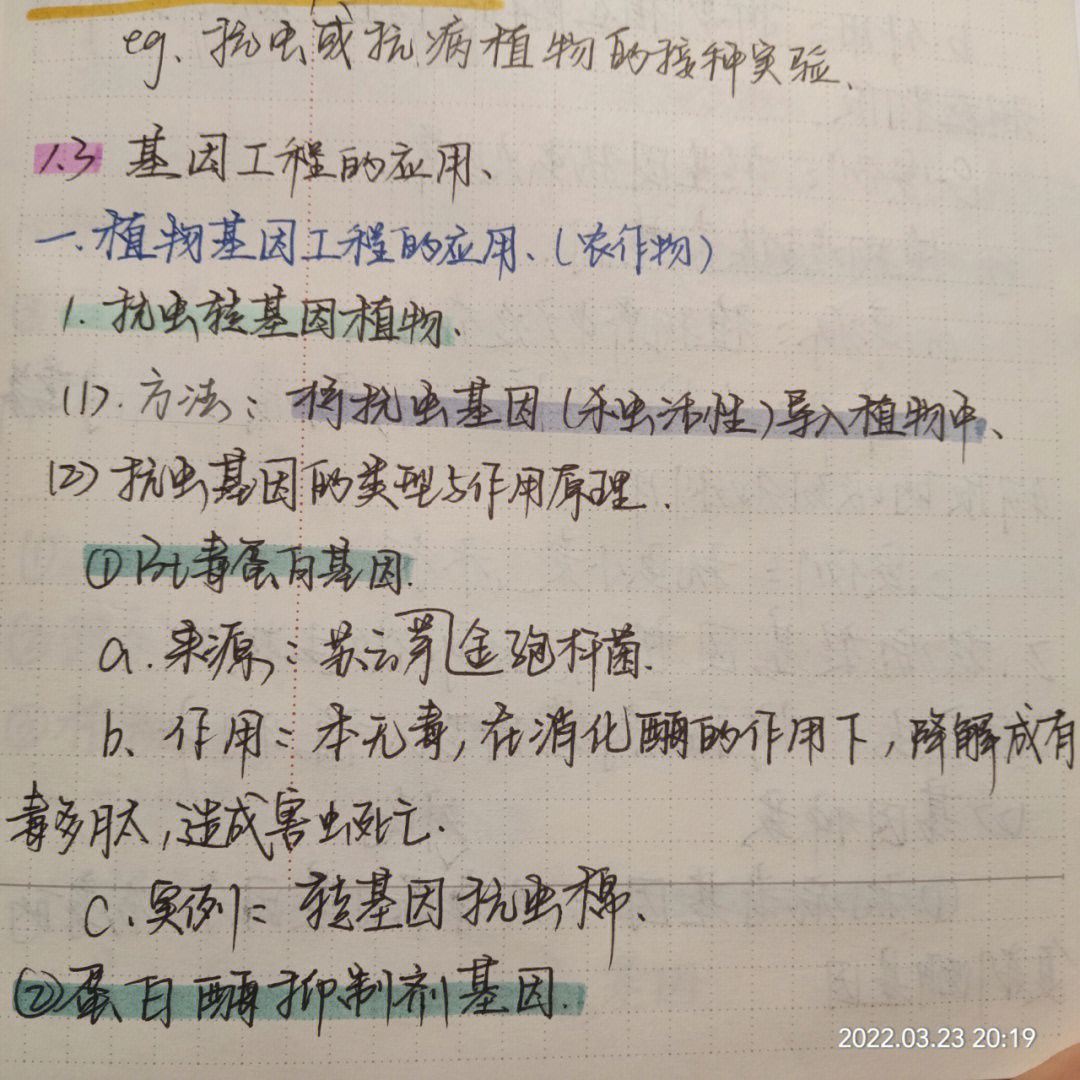 eg、抗虫或抗病植物的接种实验、
1.3 基因工程的应用、
一、植物基因工程的应用、(农作物)
1. 抗虫转基因植物、
(1). 方法：将抗虫基因(杀虫活性)导入植物中、
(2) 抗虫基因的类型与作用原理.
①Bt毒蛋白基因.
a. 来源：苏云芽金孢杆菌.
b、作用：本无毒，在消化酶的作用下，降解成有
毒多肽，造成害虫死亡.
c. 实例：转基因抗虫棉、
②蛋白酶抑制剂基因.
2022.03.23 20:19